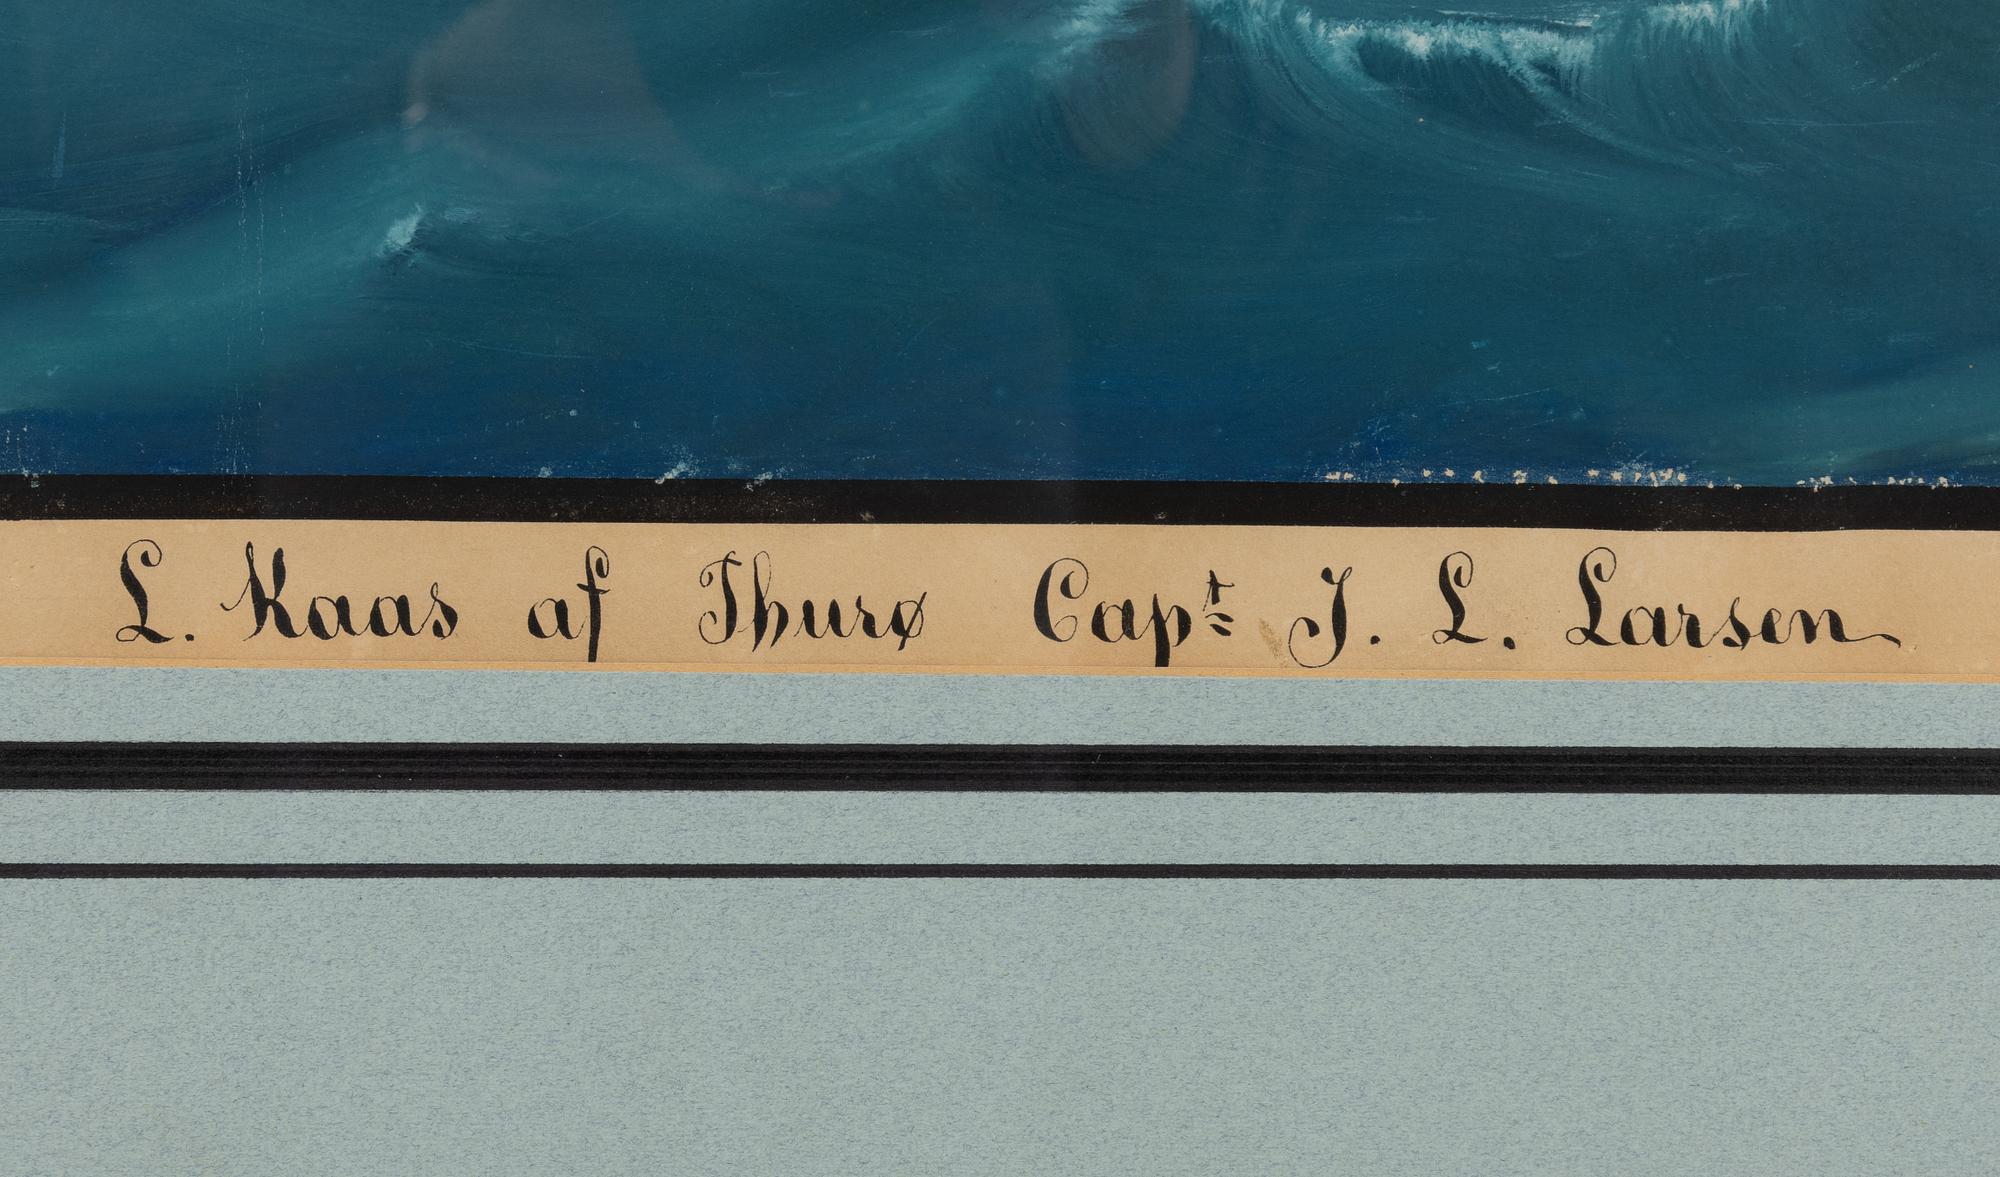 L. Kaas af Thurø Capt J. L. Larsen